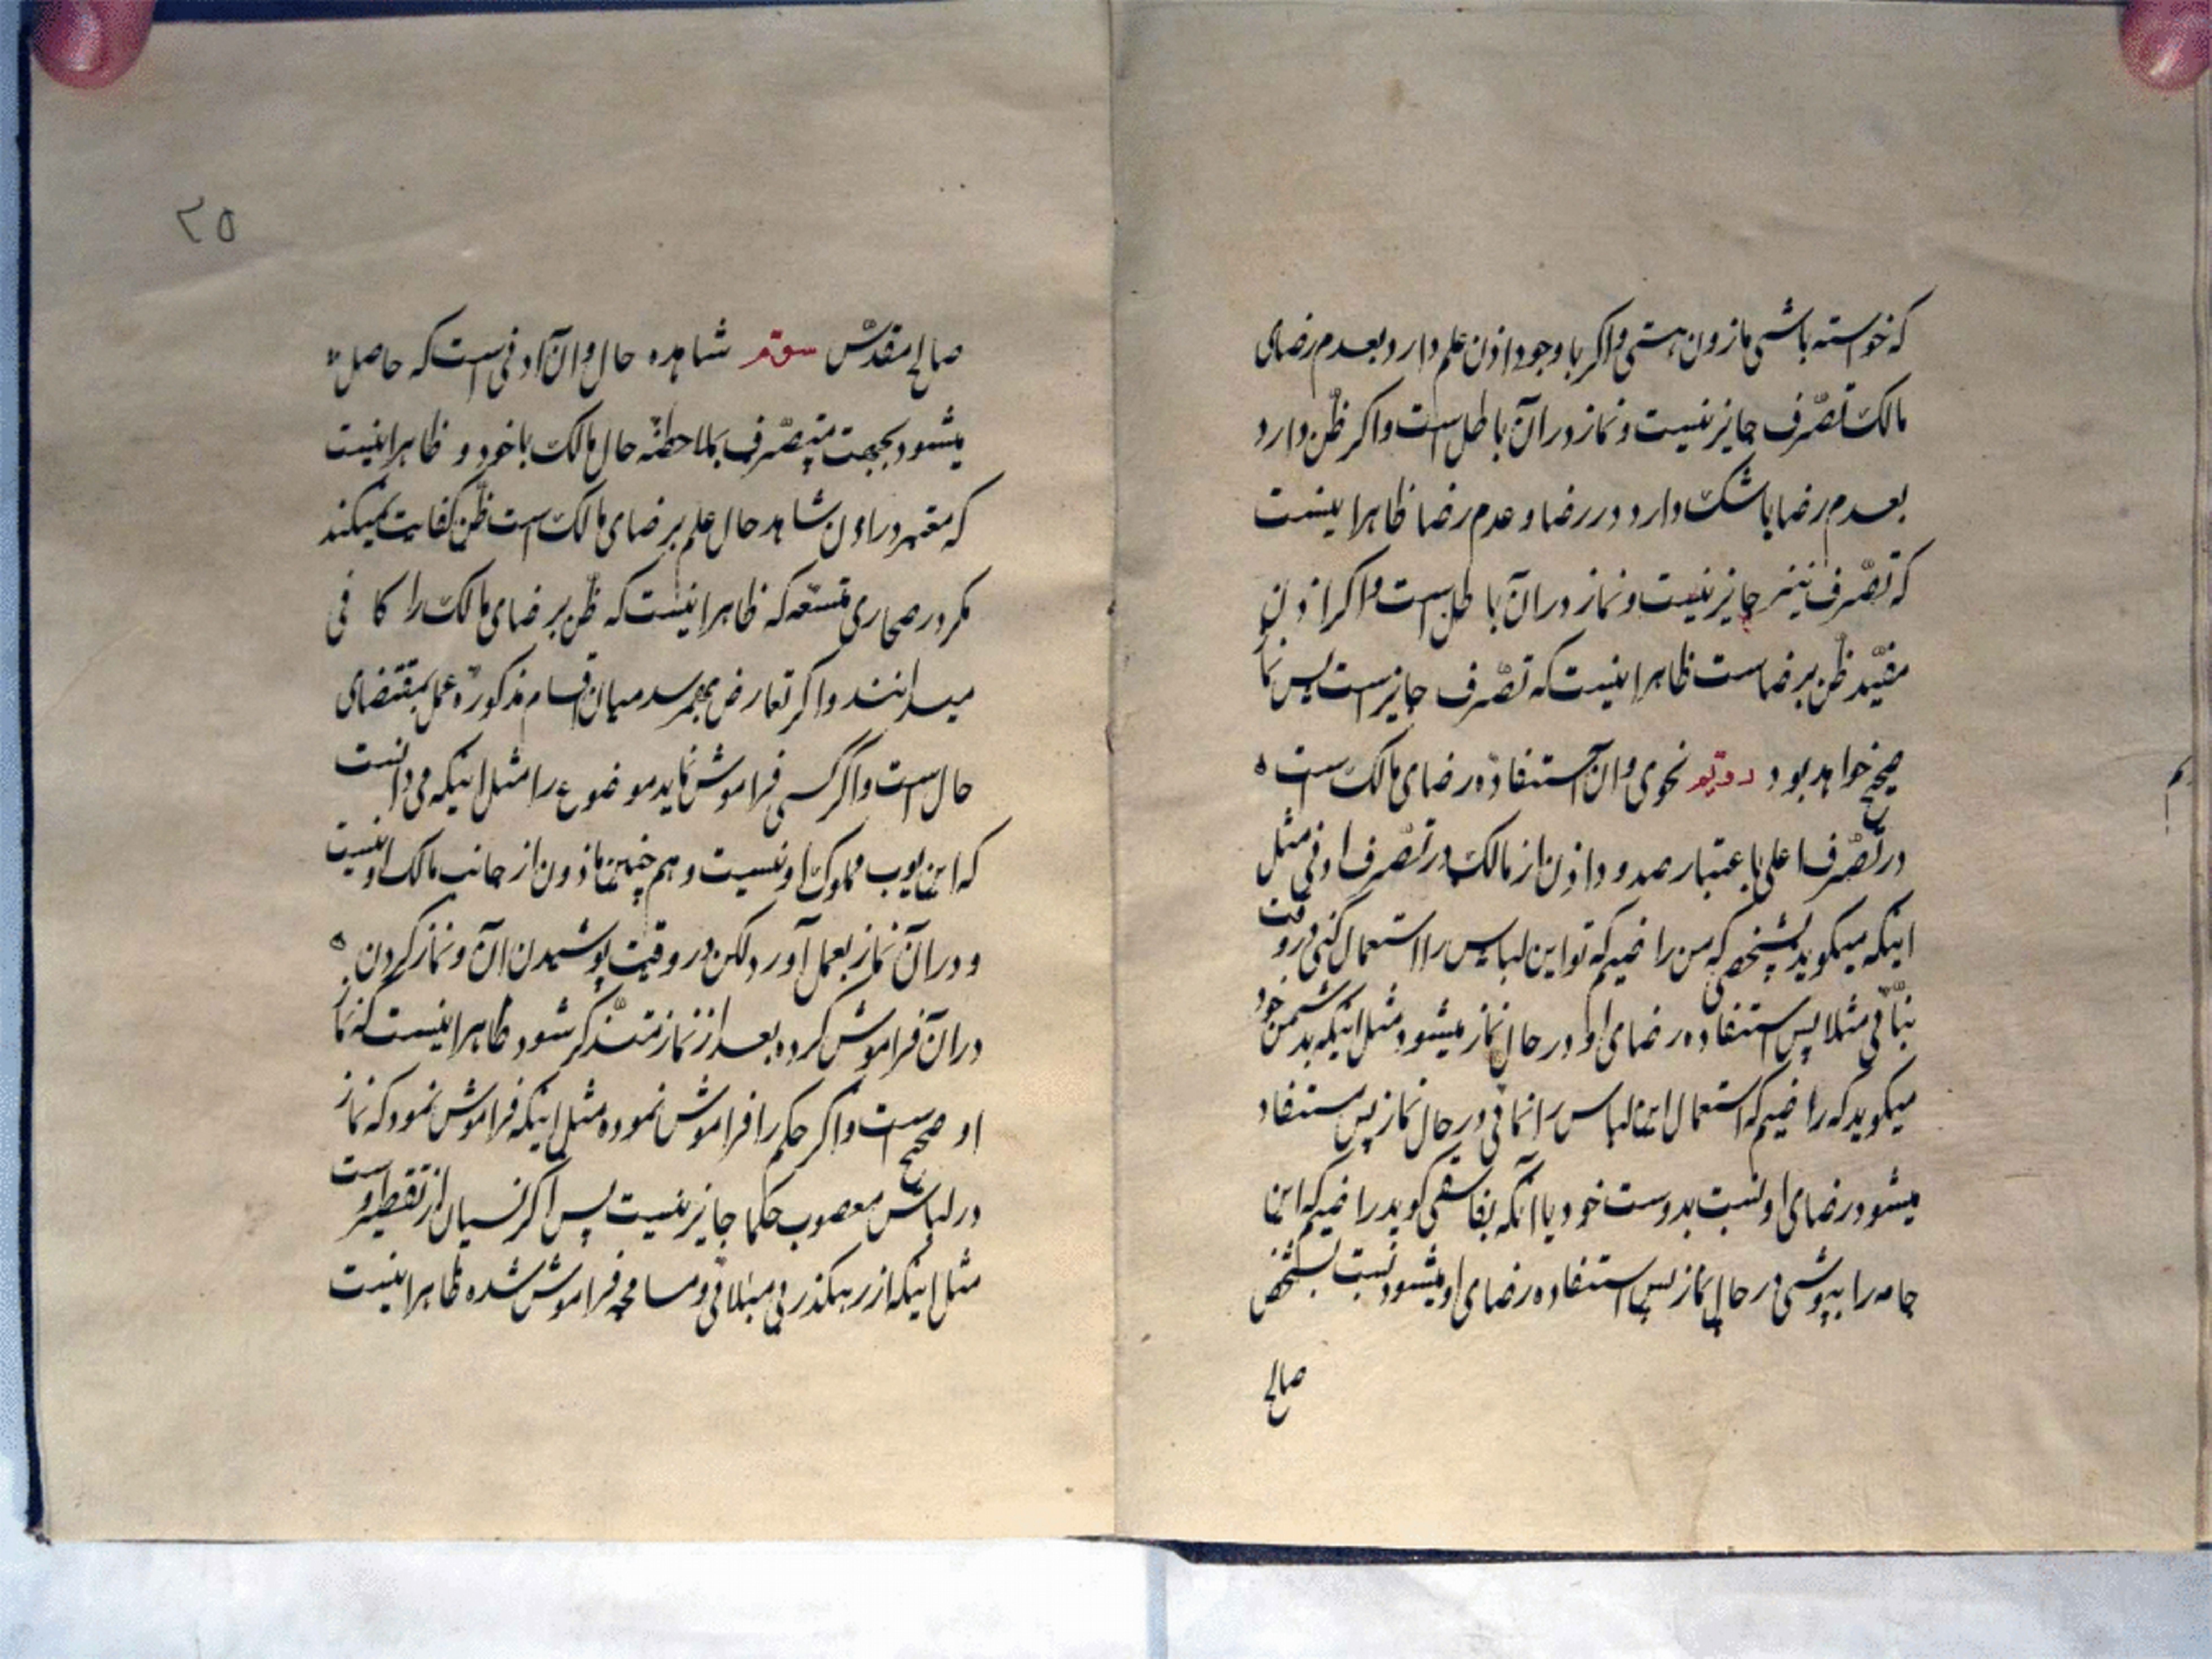 که خواسته باشی مازون هستی واکر باوجود اذن علم دارد بعدم رضای
مالک تصّرف جایز نیست و نماز دران باطل است واکر ظن دارد
بعدم رضا یا شک دارد در رضا و عدم رضا ظاهرا اینست
که تصّرف نیز جایز نیست و نماز در ان باطل است واکر اذن
مقیّد ظن برضاست ظاهرا اینست که تصّرف جایز است پس نما
صحیح خواهد بود دویّم نحوی وان استفادهٔ رضای مالک است
در تصّرف اعلی باعتبار صدور اذن از مالک در تصّرف ادنی مثل
اینکه میکوید بشخصی که من راضیم که تو این لباس را استعمال کنی در وقت
بنّائی مثلا پس استفاده رضای او در حال نماز میشود مثل اینکه بدشمن خود
میکوید که راضیم که استعمال این لباس را نمائی در حال نماز پس مستفاد
میشود رضای او نسبت بدوست خود یا انکه بفاسقی کوید راضیم که این
جامه را بپوشی در حال نماز پس استفاده رضای او میشود نسبت بشخص
صالح
۲۵
صالح مقدّس سوّم شاهده حال وان آد فی است که حاصل
میشود بجهت متصّرف بملاحظهٔ حال مالک با خود و ظاهرا اینست
که معتبر در اذن شاهد حال علم برضای مالک است ظن کفایت نمیکند
مکر در صحاری متسّعه که ظاهرا اینست که ظن برضای مالک را کا فی
میدانند واکر تعارض بهمرسد میان اقسام مذکوره عمل بمقتضای
حال است واکر کسی فراموش نماید موضوع را مثل اینکه می دانست
که این ثوب مملوک او نیست و هم چنین ماذون از جانب مالک او نیست
و در ان نماز بعمل آورد لکن در وقت پوشیدن ان و نماز کردن
در ان فراموش کرده بعد از نماز متذّکر شود ظاهرا اینست که نما
او صحیح است واکر حکم را فراموش نموده مثل اینکه فراموش نمود که نماز
در لباس مغصوب حکما جایز نیست پس اکر نسیان از تقصیر او است
مثل اینکه از رهکذر بی مبالاتی و مسامحه فراموش شده ظاهرا اینست